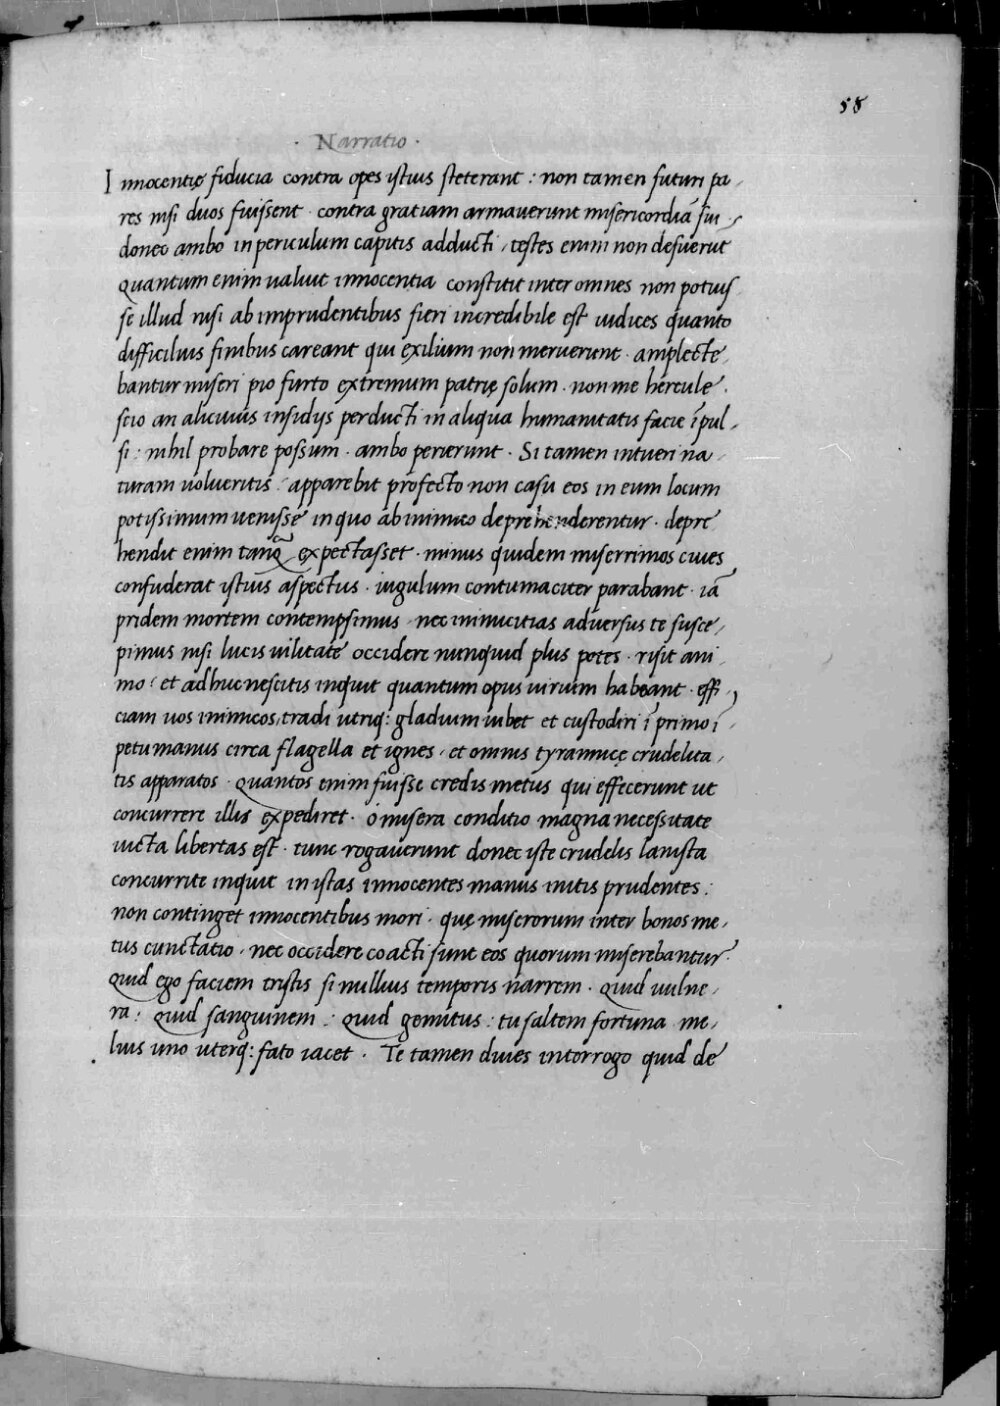 58
· Narratio ·
Innocentię fiducia contra opes istius steterant : non tamen futuri pa-
res nisi duos fuissent · contra gratiam armaverunt misericordiã sui ·
donec ambo in periculum capitis adducti , testes enim non defuerut
quantum enim valuit innocentia constitit inter omnes non potuis
se illud nisi ab imprudentibus fieri incredibile est iudices quanto
difficilius finibus careant qui exilium non meruerunt · amplecte-
bantur miseri pro furto extremum patrię solum · non me hercule ·
scio an alicuius insidijs perducti in aliqua humanitatis facie ĩpul-
si : nihil probare possum · ambo perierunt · Si tamen intueri na-
turam volueritis : apparebit profecto non casu eos in eum locum
potissimum venisse in quo ab inimico deprehenderentur · depre
hendit enim tanq̃ expectasset · minus quidem miserrimos cives
confuderat istius aspectus · iugulum contumaciter parabant · iã
pridem mortem contempsimus · nec inimicitias adversus te susce-
pimus nisi lucis vilitate occidere nunquid plus potes · risit ani-
mo : et adhuc nescitis inquit quantum opus virium habeant · effi-
ciam vos inimicos, tradi utriq: gladium iubet et custodiri ĩ primo ĩ-
petu manus circa flagella et ignes · et omnis tyrannicę crudelita-
tis apparatos · quantos enim fuisse credis metus qui effecerunt ut
concurrere illis expediret · o misera conditio magna necessitate
victa libertas est · tunc rogaverunt donec iste crudelis lanista
concurrite inquit in istas innocentes manus initis prudentes :
non continget innocentibus mori · quę miserorum inter bonos me-
tus cunctatio · nec occidere coacti sunt eos quorum miserebantur ·
quid ego faciem tristis si nullius temporis narrem · quid vulne-
ra : quid sanguinem : quid gemitus : tu saltem fortuna me-
lius uno uterq: fato iacet · Te tamen dives interrogo quid de